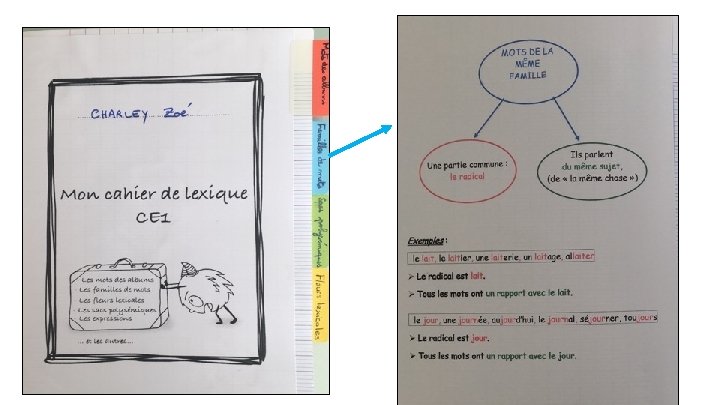 CHARLEY Zoé
Mon cahier de lexique
CE1
Les mots des albums
Les familles de mots
Les fleurs lexicales
Les sacs polysémiques
Les expressions
... et les autres...
Mots des albums
Familles de mots
Sacs polysémiques
Fleurs lexicales
MOTS DE LA
MÊME
FAMILLE
Une partie commune :
le radical
Ils parlent
du même sujet,
(de « la même chose »)
Exemples :
le lait, le laitier, une laiterie, un laitage, allaiter
➢ Le radical est lait.
➢ Tous les mots ont un rapport avec le lait.
le jour, une journée, aujourd'hui, le journal, séjourner, toujours
➢ Le radical est jour.
➢ Tous les mots ont un rapport avec le jour.